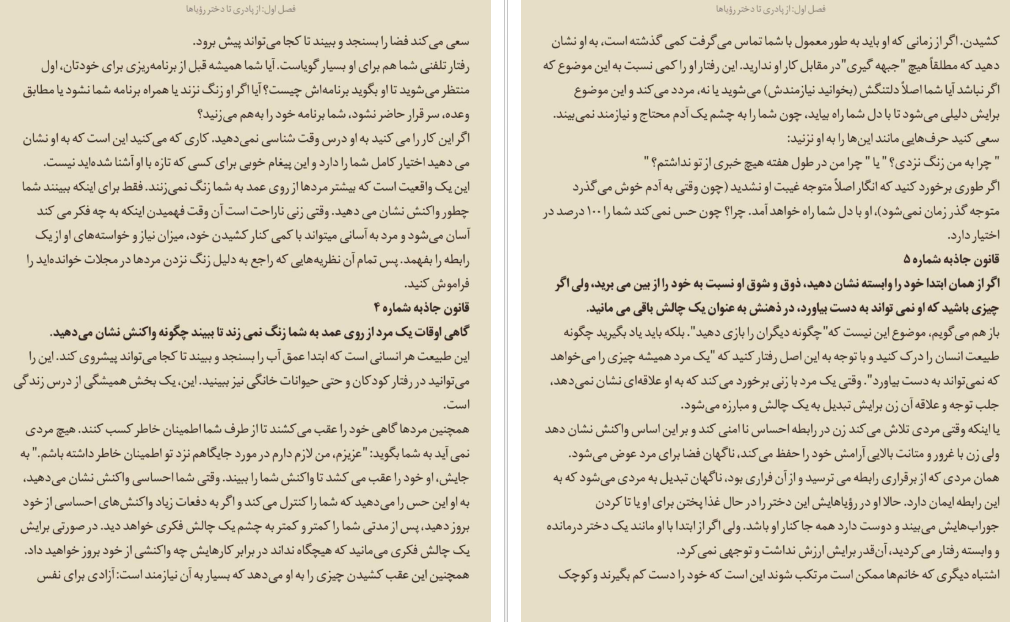 فصل اول: از پادری تا دختر رؤیاها
سعی می‌کند فضا را بسنجد و ببیند تا کجا می‌تواند پیش برود.
رفتار تلفنی شما هم برای او بسیار گویاست. آیا شما همیشه قبل از برنامه‌ریزی برای خودتان، اول
منتظر می‌شوید تا او بگوید برنامه‌اش چیست؟ آیا اگر او زنگ نزند یا همراه برنامه شما نشود یا مطابق
وعده، سر قرار حاضر نشود، شما برنامه خود را به‌هم می‌زنید؟
اگر این کار را می کنید به او درس وقت شناسی نمی‌دهید. کاری که می‌کنید این است که به او نشان
می دهید اختیار کامل شما را دارد و این پیغام خوبی برای کسی که تازه با او آشنا شده‌اید نیست.
این یک واقعیت است که بیشتر مردها از روی عمد به شما زنگ نمی‌زنند. فقط برای اینکه ببینند شما
چطور واکنش نشان می دهید. وقتی زنی ناراحت است آن وقت فهمیدن اینکه به چه فکر می کند
آسان می‌شود و مرد به آسانی میتواند با کمی کنار کشیدن خود، میزان نیاز و خواسته‌های او از یک
رابطه را بفهمد. پس تمام آن نظریه‌هایی که راجع به دلیل زنگ نزدن مردها در مجلات خوانده‌اید را
فراموش کنید.
قانون جاذبه شماره ۴
گاهی اوقات یک مرد از روی عمد به شما زنگ نمی زند تا ببیند چگونه واکنش نشان می‌دهید.
این طبیعت هر انسانی است که ابتدا عمق آب را بسنجد و ببیند تا کجا می‌تواند پیشروی کند. این را
می‌توانید در رفتار کودکان و حتی حیوانات خانگی نیز ببینید. این، یک بخش همیشگی از درس زندگی
است.
همچنین مردها گاهی خود را عقب می‌کشند تا از طرف شما اطمینان خاطر کسب کنند. هیچ مردی
نمی آید به شما بگوید: "عزیزم، من لازم دارم در مورد جایگاهم نزد تو اطمینان خاطر داشته باشم." به
جایش، او خود را عقب می کشد تا واکنش شما را ببیند. وقتی شما احساسی واکنش نشان می‌دهید،
به او این حس را می‌دهید که شما را کنترل می‌کند و اگر به دفعات زیاد واکنش‌های احساسی از خود
بروز دهید، پس از مدتی شما را کمتر و کمتر به چشم یک چالش فکری خواهد دید. در صورتی برایش
یک چالش فکری می‌مانید که هیچگاه نداند در برابر کارهایش چه واکنشی از خود بروز خواهید داد.
همچنین این عقب کشیدن چیزی را به او می‌دهد که بسیار به آن نیازمند است: آزادی برای نفس
فصل اول: از پادری تا دختر رؤیاها
کشیدن. اگر از زمانی که او باید به طور معمول با شما تماس می‌گرفت کمی گذشته است، به او نشان
دهید که مطلقاً هیچ "جبهه گیری"در مقابل کار او ندارید. این رفتار او را کمی نسبت به این موضوع که
اگر نباشد آیا شما اصلاً دلتنگش (بخوانید نیازمندش) می‌شوید یا نه، مردد می‌کند و این موضوع
برایش دلیلی می‌شود تا با دل شما راه بیاید، چون شما را به چشم یک آدم محتاج و نیازمند نمی‌بیند.
سعی کنید حرف‌هایی مانند این‌ها را به او نزنید:
" چرا به من زنگ نزدی؟ " یا " چرا من در طول هفته هیچ خبری از تو نداشتم؟ "
اگر طوری برخورد کنید که انگار اصلاً متوجه غیبت او نشدید (چون وقتی به آدم خوش می‌گذرد
متوجه گذر زمان نمی‌شود)، او با دل شما راه خواهد آمد. چرا؟ چون حس نمی کند شما را ۱۰۰ درصد در
اختیار دارد.
قانون جاذبه شماره ۵
اگر از همان ابتدا خود را وابسته نشان دهید، ذوق و شوق او نسبت به خود را از بین می برید، ولی اگر
چیزی باشید که او نمی تواند به دست بیاورد، در ذهنش به عنوان یک چالش باقی می مانید.
باز هم می‌گویم، موضوع این نیست که"چگونه دیگران را بازی دهید". بلکه باید یاد بگیرید چگونه
طبیعت انسان را درک کنید و با توجه به این اصل رفتار کنید که "یک مرد همیشه چیزی را می‌خواهد
که نمی‌تواند به دست بیاورد". وقتی یک مرد با زنی برخورد می‌کند که به او علاقه‌ای نشان نمی‌دهد،
جلب توجه و علاقه آن زن برایش تبدیل به یک چالش و مبارزه می‌شود.
یا اینکه وقتی مردی تلاش می کند زن در رابطه احساس نا امنی کند و بر این اساس واکنش نشان دهد
ولی زن با غرور و متانت بالایی آرامش خود را حفظ می‌کند، ناگهان فضا برای مرد عوض می‌شود.
همان مردی که از برقراری رابطه می ترسید و از آن فراری بود، ناگهان تبدیل به مردی می‌شود که به
این رابطه ایمان دارد. حالا او در رؤیاهایش این دختر را در حال غذا پختن برای او یا تا کردن
جوراب‌هایش می‌بیند و دوست دارد همه جا کنار او باشد. ولی اگر از ابتدا با او مانند یک دختر درمانده
و وابسته رفتار می‌کردید، آن‌قدر برایش ارزش نداشت و توجهی نمی‌کرد.
اشتباه دیگری که خانم‌ها ممکن است مرتکب شوند این است که خود را دست کم بگیرند و کوچک